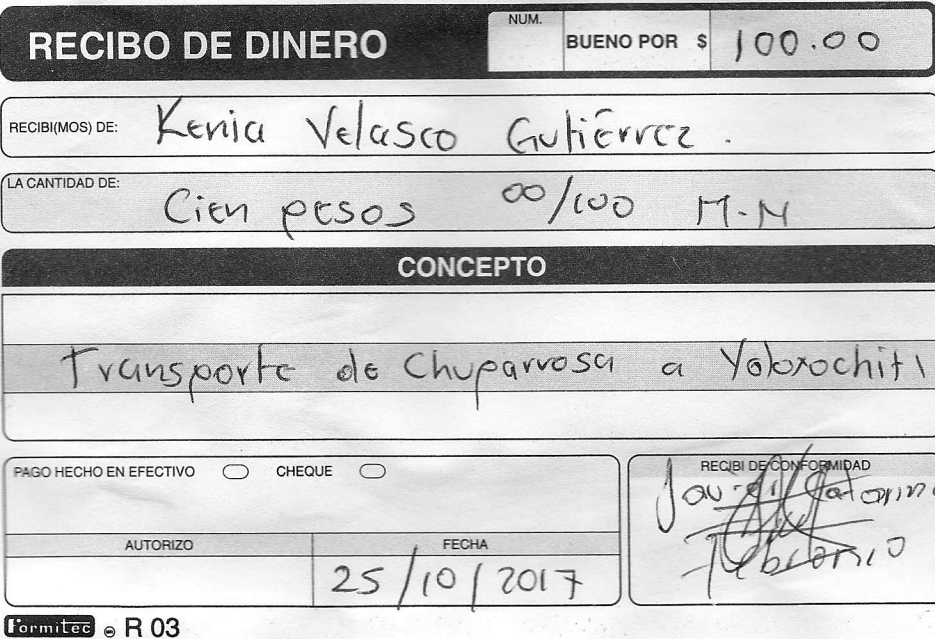 RECIBO DE DINERO
NUM.
BUENO POR $ 100.00
RECIBI(MOS) DE: Kenia Velasco Gutiérrez.
LA CANTIDAD DE: Cien pesos 00/100 M.N
CONCEPTO
Transporte de Chuparrosa a Yoloxochitl
PAGO HECHO EN EFECTIVO CHEQUE
RECIBI DE CONFORMIDAD
AUTORIZO
FECHA
25/10/2017
Formitec R 03